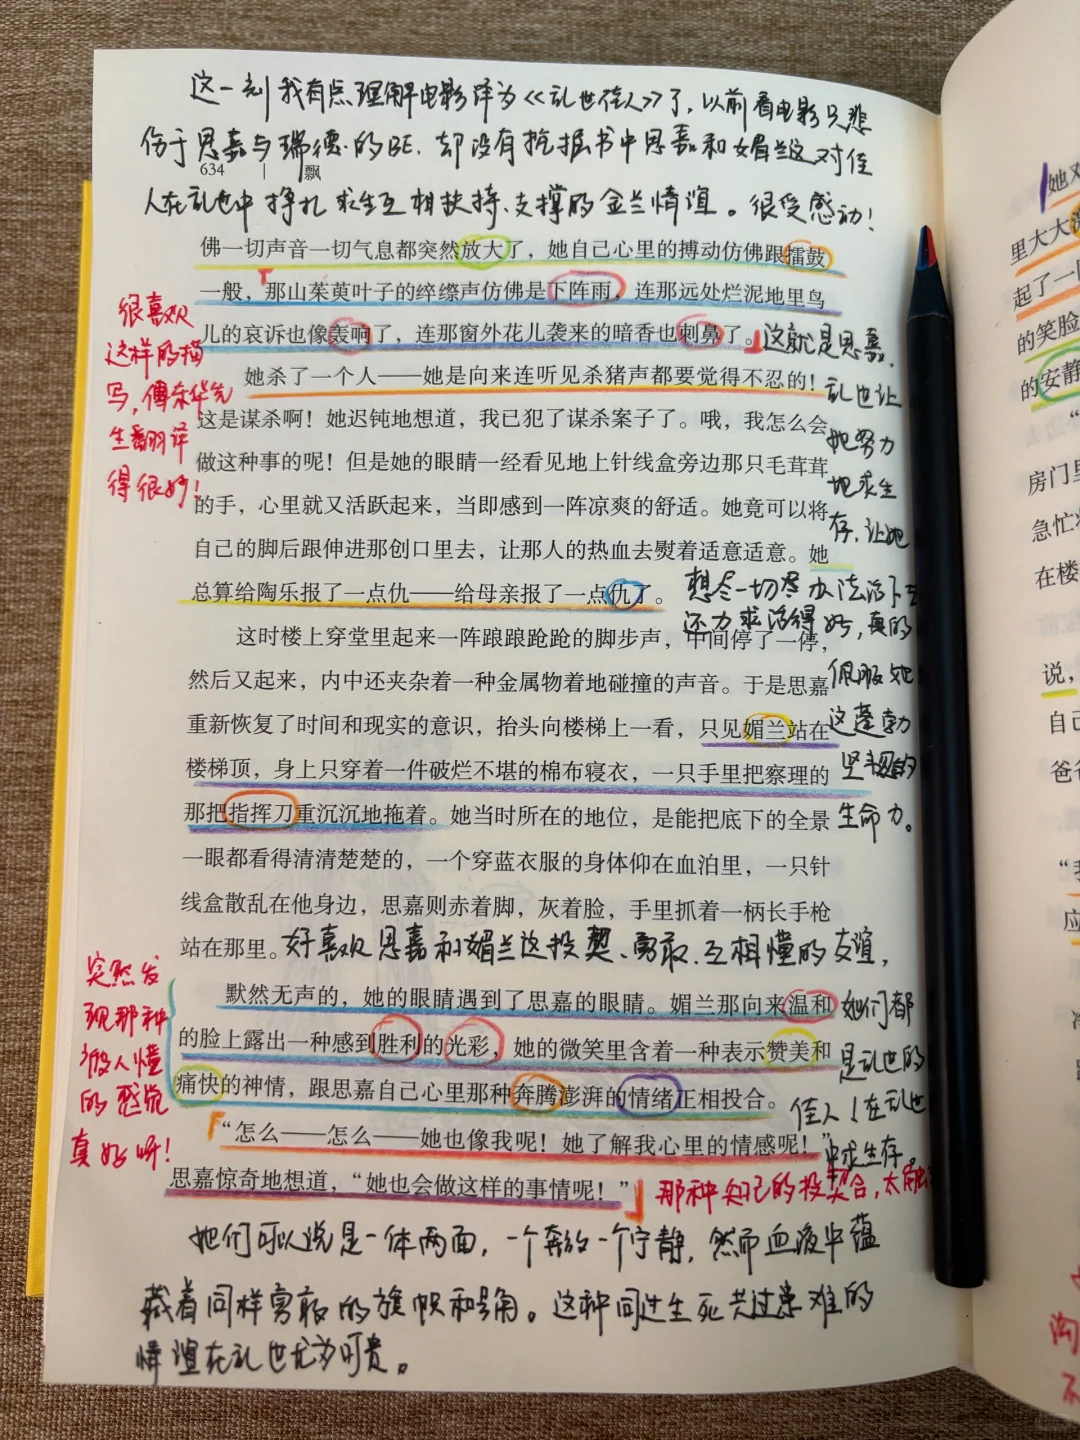 这一刻我有点理解电影译为《乱世佳人》了，以前看电影只悲
伤于思嘉与瑞德的BE，却没有挖掘书中思嘉和媚兰这对佳
634 | 飘
人在乱世中挣扎求生互相扶持、支撑的金兰情谊。很受感动！
佛一切声音一切气息都突然放大了，她自己心里的搏动仿佛跟擂鼓
一般，那山茱萸叶子的綷縩声仿佛是下阵雨，连那远处烂泥地里鸟
儿的哀诉也像轰响了，连那窗外花儿袭来的暗香也刺鼻了。
她杀了一个人——她是向来连听见杀猪声都要觉得不忍的！
这是谋杀啊！她迟钝地想道，我已犯了谋杀案子了。哦，我怎么会
做这种事的呢！但是她的眼睛一经看见地上针线盒旁边那只毛茸茸
的手，心里就又活跃起来，当即感到一阵凉爽的舒适。她竟可以将
自己的脚后跟伸进那创口里去，让那人的热血去熨着适意适意。她
总算给陶乐报了一点仇——给母亲报了一点仇了。
这时楼上穿堂里起来一阵踉踉跄跄的脚步声，中间停了一停，
然后又起来，内中还夹杂着一种金属物着地碰撞的声音。于是思嘉
重新恢复了时间和现实的意识，抬头向楼梯上一看，只见媚兰站在
楼梯顶，身上只穿着一件破烂不堪的棉布寝衣，一只手里把察理的
那把指挥刀重沉沉地拖着。她当时所在的地位，是能把底下的全景
一眼都看得清清楚楚的，一个穿蓝衣服的身体仰在血泊里，一只针
线盒散乱在他身边，思嘉则赤着脚，灰着脸，手里抓着一柄长手枪
站在那里。
默然无声的，她的眼睛遇到了思嘉的眼睛。媚兰那向来温和
的脸上露出一种感到胜利的光彩，她的微笑里含着一种表示赞美和
痛快的神情，跟思嘉自己心里那种奔腾澎湃的情绪正相投合。
“怎么——怎么——她也像我呢！她了解我心里的情感呢！”
思嘉惊奇地想道，“她也会做这样的事情呢！”
很喜欢
这样的描
写，傅东华先
生翻译
得很妙！
这就是思嘉，
乱世让
她努力
地求生
存，让她
想尽一切尽办法活下去
还力求活得好，真的
佩服她
这蓬勃
坚韧的
生命力。
好喜欢思嘉和媚兰这投契、勇敢、互相懂的友谊，
她们都
是乱世的
佳人！在乱世
中求生存。
突然发
现那种
被人懂
的感觉
真好呀！
那种知己的投契合，太
她们可以说是一体两面，一个奔放一个宁静，然而血液中蕴
藏着同样勇敢的旗帜和号角。这种同过生死共过患难的
情谊在乱世尤为可贵。
她
里大大
起了一
的笑脸
的安静
房门里
急忙
在楼
说，
自己
爸爸
应
陶
不